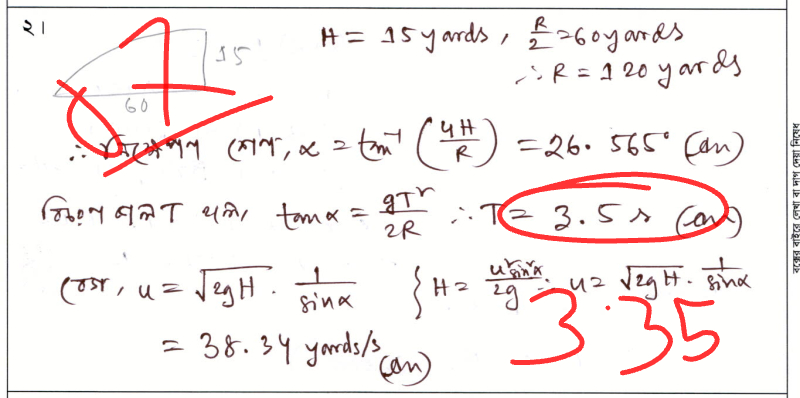 ২।
15
60
H = 15 yards, R/2 = 60 yards
∴ R = 120 yards
∴ নিক্ষেপণ কোণ, α = tan⁻¹ (4H/R) = 26.565° (Ans)
বিচরণকাল T হলে, tanα = gT²/2R ∴ T = 3.5 s (Ans)
বেগ, u = √2gH · 1/sinα { H = u²sin²α/2g ∴ u = √2gH · 1/sinα
= 38.34 yards/s (Ans)
3.35
বক্সের বাইরে লেখা বা দাগ দেয়া নিষেধ